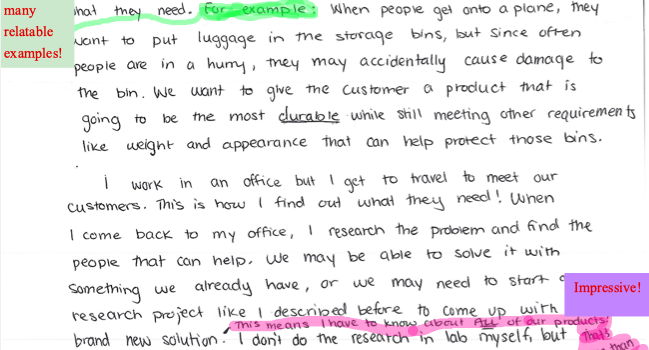 many
relatable
examples!
what they need. For example: When people get onto a plane, they
want to put luggage in the storage bins, but since often
people are in a hurry, they may accidentally cause damage to
the bin. We want to give the customer a product that is
going to be the most durable while still meeting other requirements
like weight and appearance that can help protect those bins.
I work in an office but I get to travel to meet our
customers. This is how I find out what they need! When
I come back to my office, I research the problem and find the
people that can help. We may be able to solve it with
something we already have, or we may need to start
Impressive!
research project like I described before to come up with
This means I have to know about ALL of our products!
brand new solution. I don't do the research in lab myself, but
That's
than